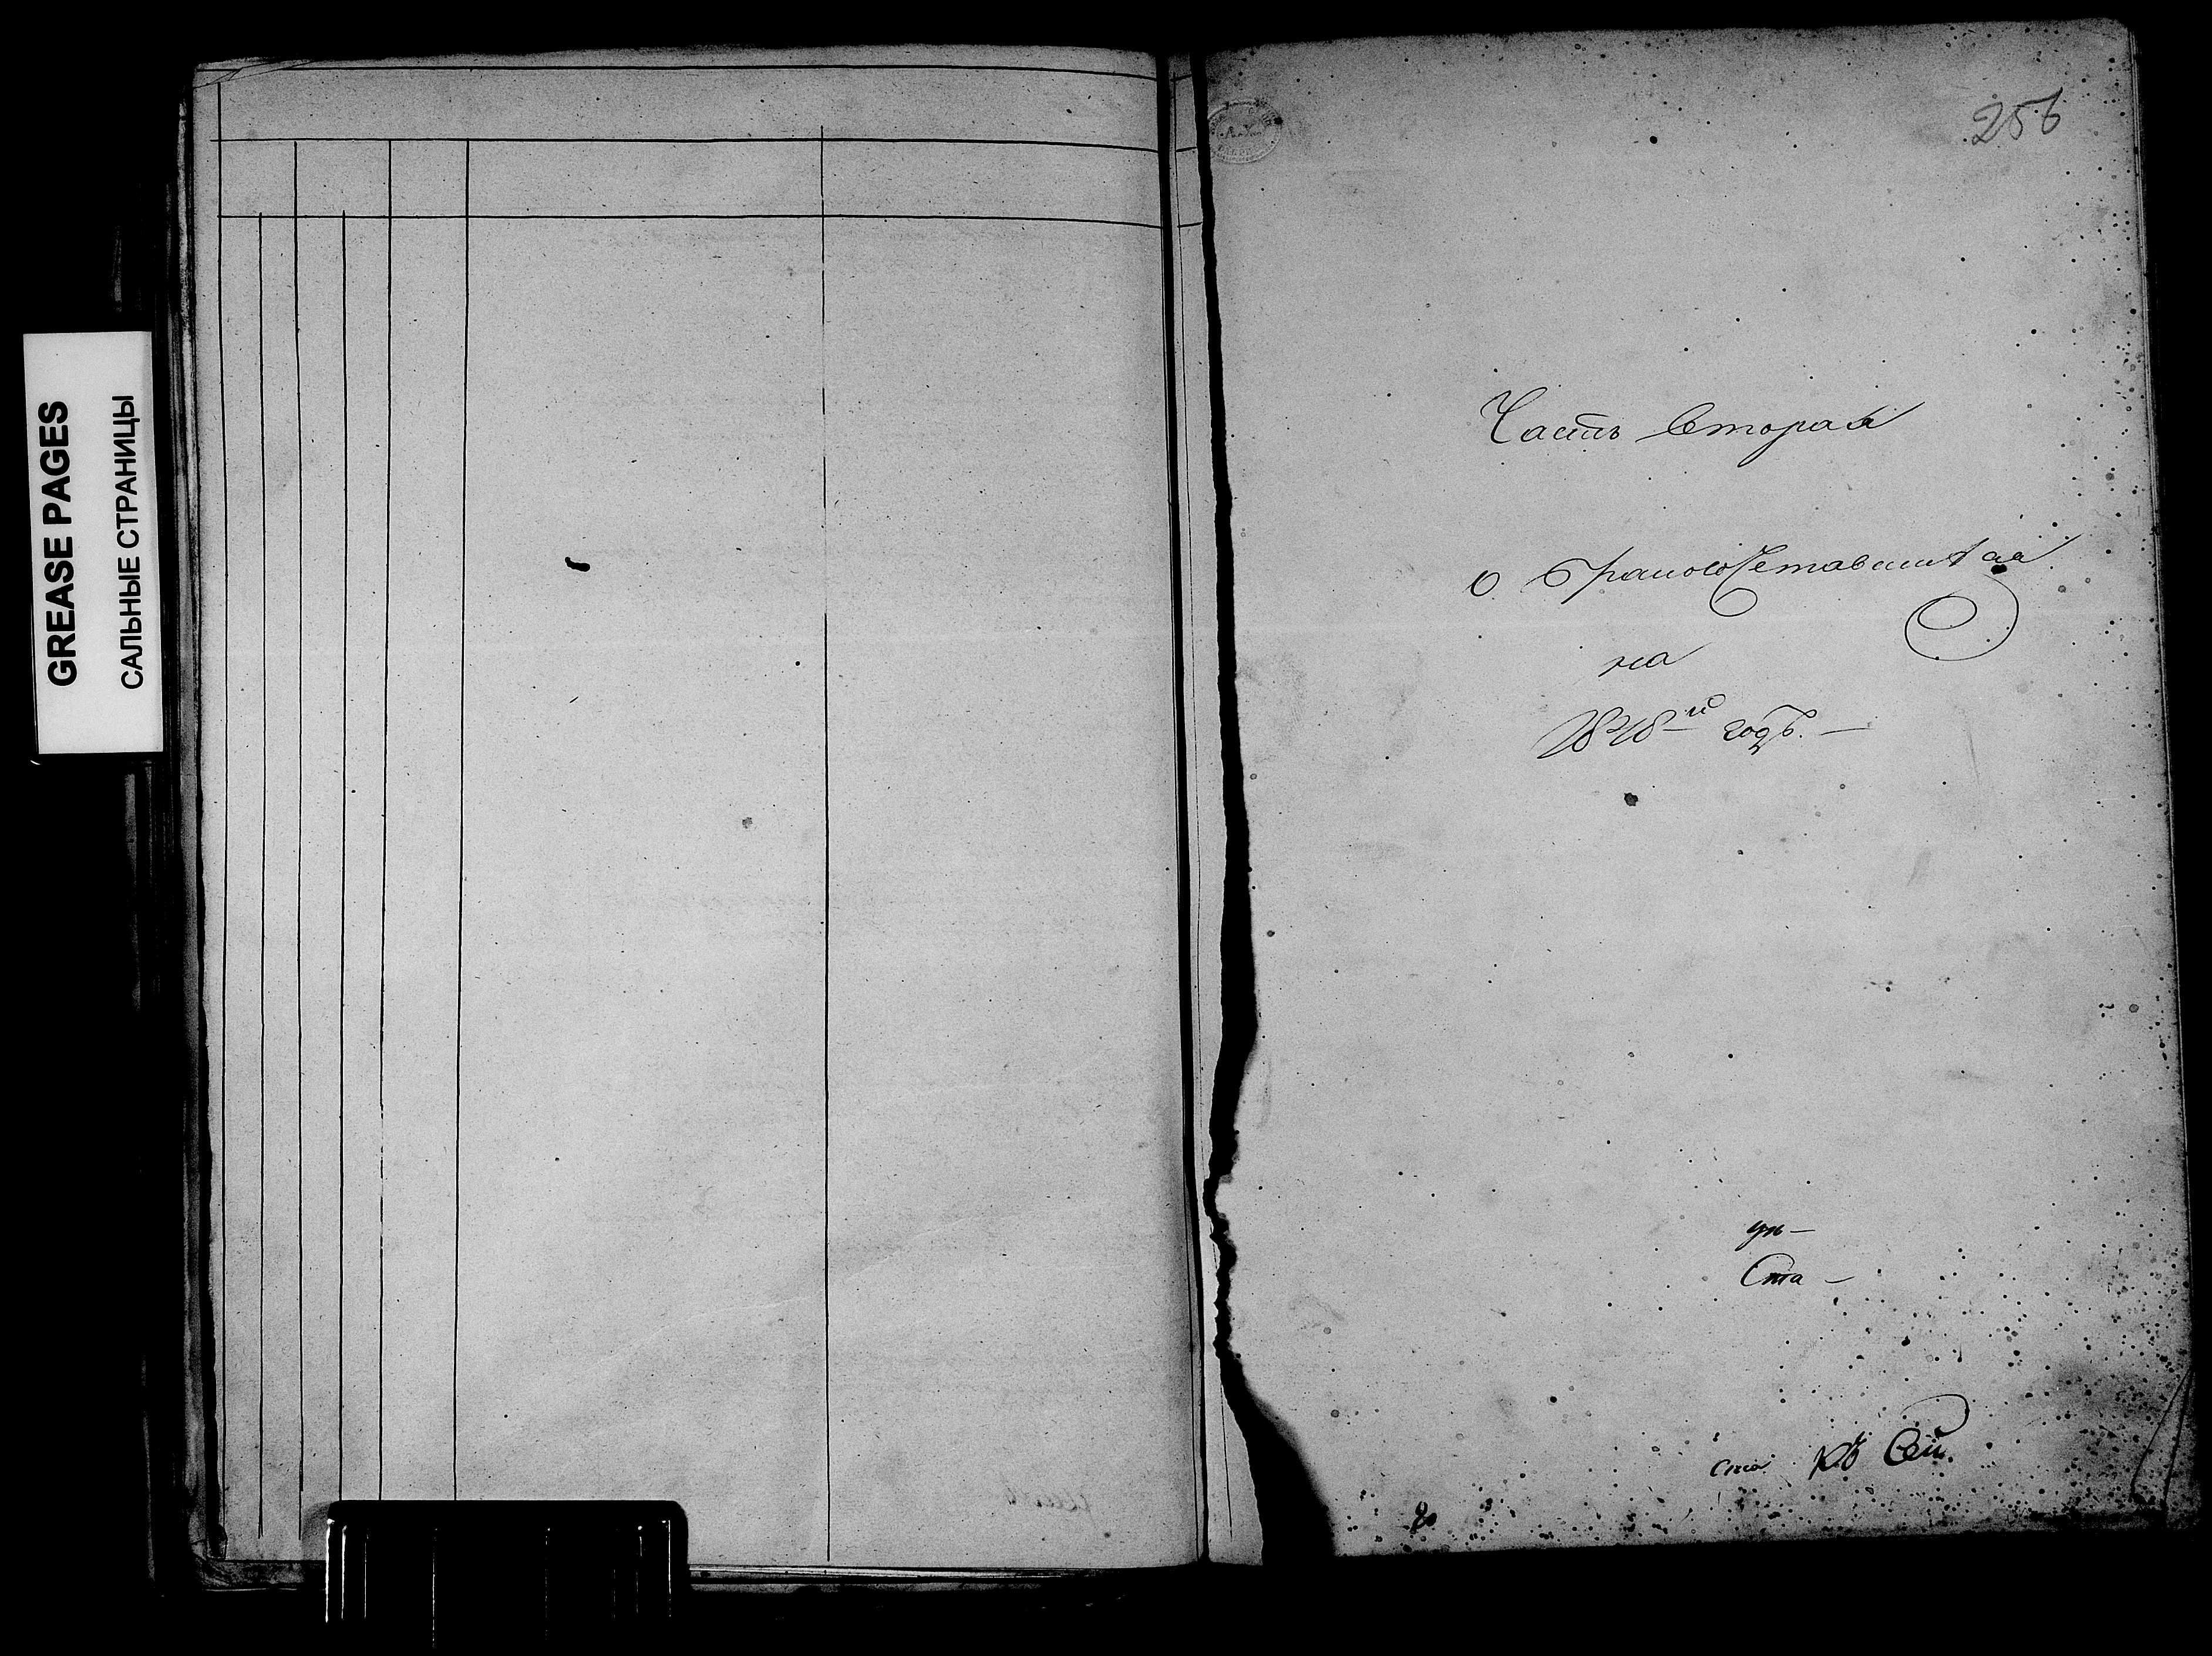 GREASE PAGES
САЛЬНЫЕ СТРАНИЦЫ
256
Часть вторая
о бракосочетавшихся
на
1848й годъ.
ул
Ста
ста къ Сей